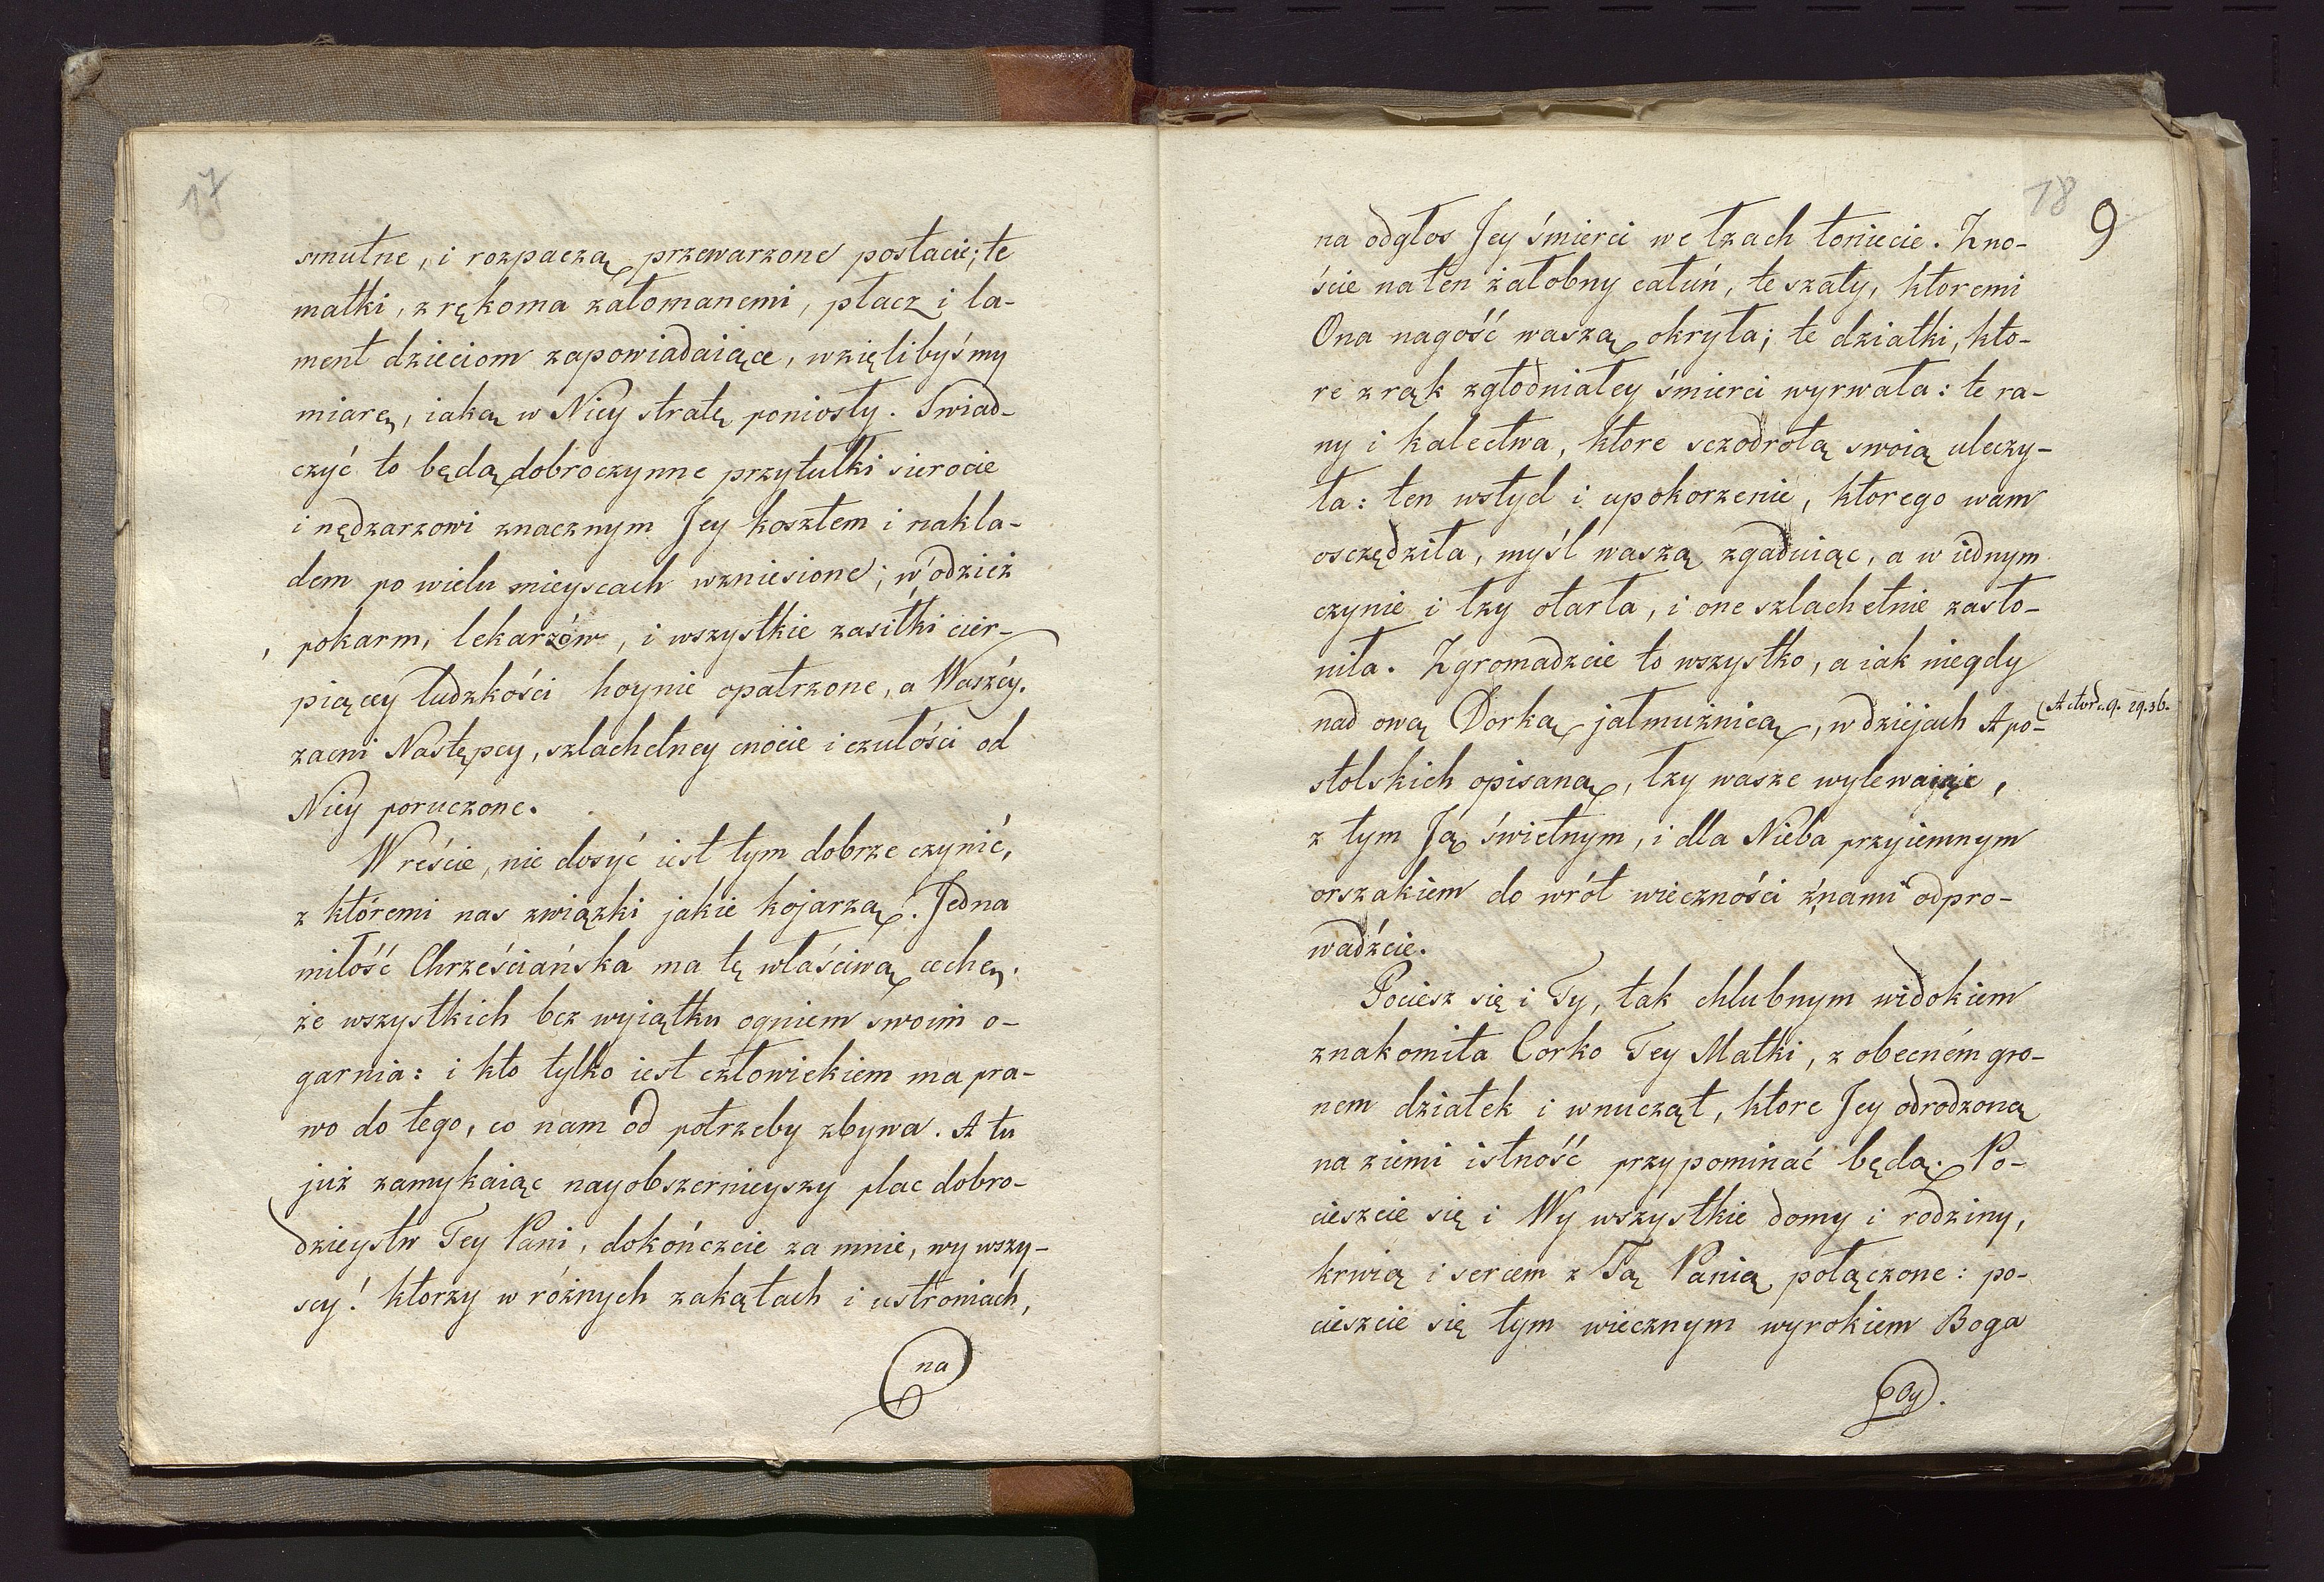 17
smutne, i rozpaczą przewarzone postacie; te
matki, z rękoma załomanemi, płacz i la-
ment dzieciom zapowiadaiące, wzięlibyśmy
miarę, iaką w Niey stratę poniosły. Swiad-
czyć to będą dobroczynne przytułki sierocie
i nędzarzowi znacznym Jey kosztem i nakła-
dem po wielu mieyscach wzniesione; w odzież
, pokarm, lekarzów, i wszystkie zasiłki cier-
piącey ludzkości hoynie opatrzone, a Waszéy,
zacni Następcy, szlachetney cnocie i czułości od
Niey poruczone.
Wreście, nie dosyć iest tym dobrze czynić,
z któremi nas związki jakie kojarzą. Jedna
miłość Chrześciańska ma tę właściwą cechę,
że wszystkich bez wyiątku ogniem swoim o-
garnia: i kto tylko iest człowiekiem ma pra-
wo do tego, co nam od potrzeby zbywa. A tu
już zamykaiąc nayobszernieyszy plac dobro-
dzieystw Tey Pani, dokończcie za mnie, wy wszy-
scy! ktorzy w różnych zakątach i ustroniach,
na
18
9
na odgłos Jey śmierci we łzach toniecie. Zno-
ście na ten żałobny całuń, te szaty, ktoremi
Ona nagość waszą okryła; te dziatki, kto-
re z rąk zgłodniałey śmierci wyrwała: te ra-
ny i kalectwa, ktore sczodrotą swoią uleczy-
ła: ten wstyd i upokorzenie, ktorego wam
osczędziła, myśl waszą zgaduiąc, a w iednym
czynie i łzy otarła, i one szlachetnie zasło-
niła. Zgromadzcie to wszystko, a iak niegdy
nad ową Dorką jałmużnicą, w dziejach Apo-
(Actor. c. 9. 29. 36.
stolskich opisaną, łzy wasze wylewaiąc,
z tym Ją świetnym, i dla Nieba przyiemnym
orszakiem do wrót wieczności z nami odpro-
wadźcie.
Pociesz się i Ty, tak chlubnym widokiem
znakomita Corko Tey Matki, z obecném gro-
nem dziatek i wnucząt, ktore Jey odrodzoną
na ziemi istność przypominać będą. Po-
cieszcie się i Wy wszystkie domy i rodziny,
krwią i sercem z Tą Panią połączone: po-
cieszcie się tym wiecznym wyrokiem Boga